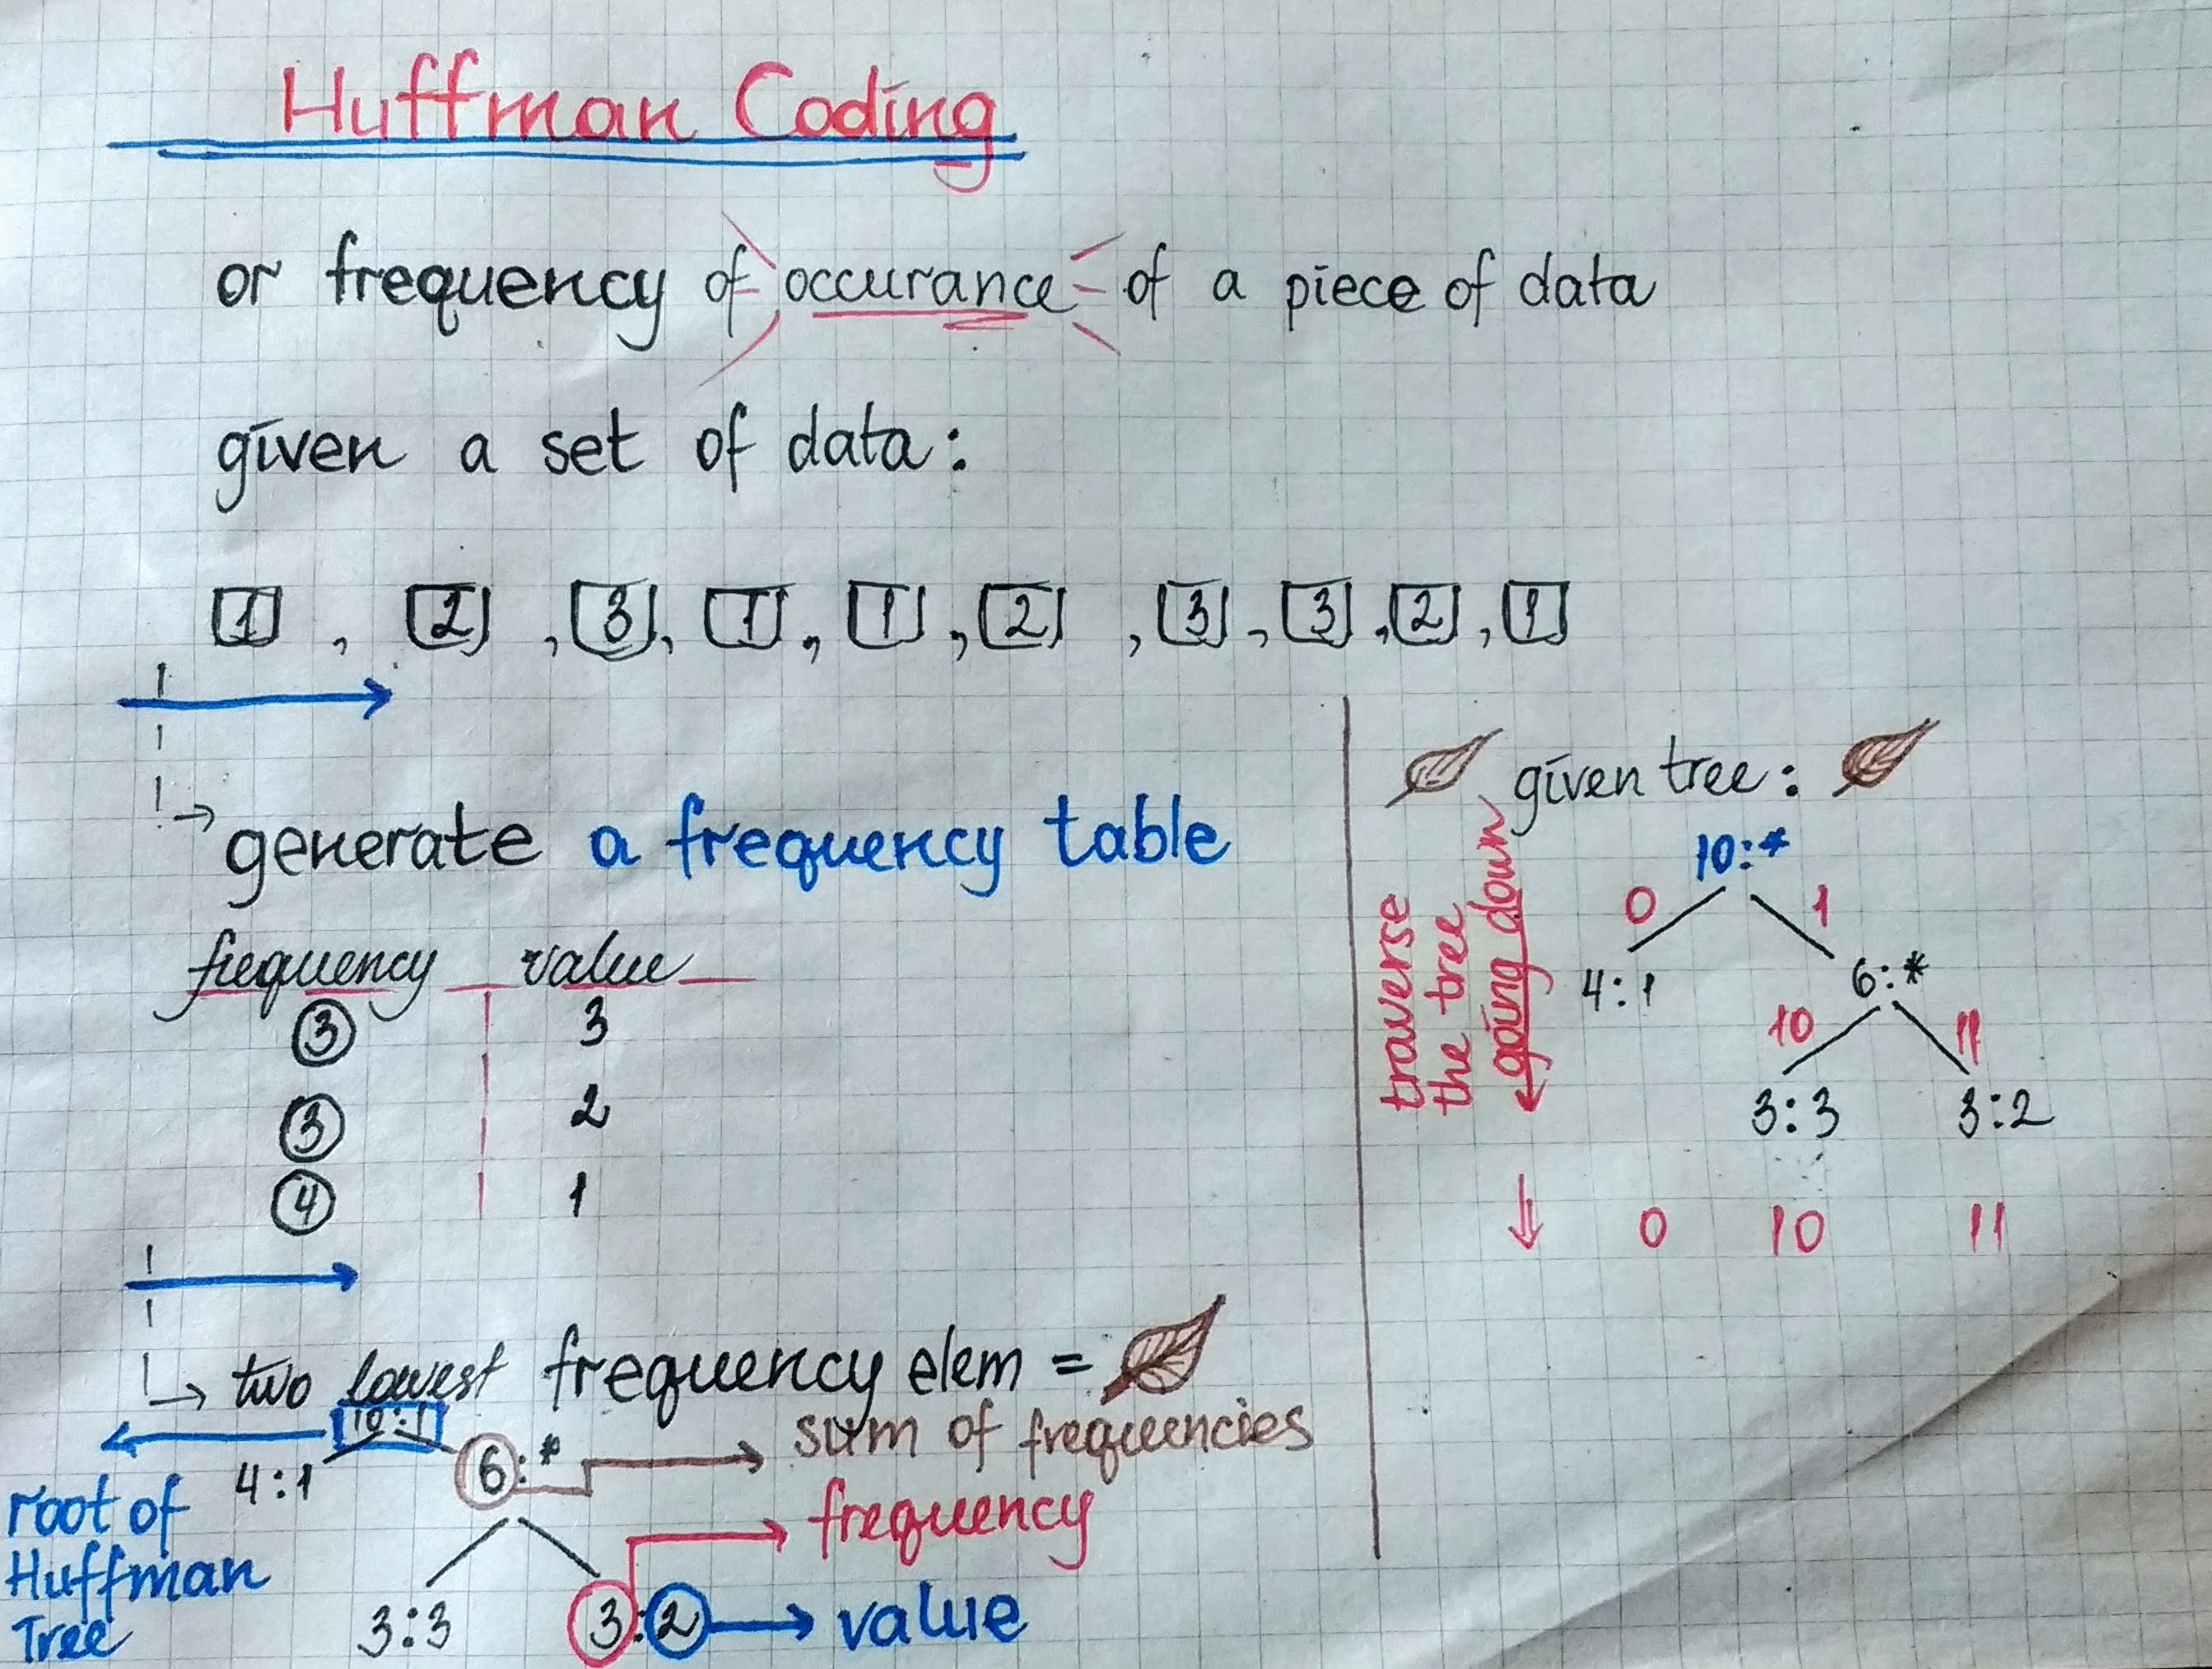 Huffman Coding
or frequency of occurance of a piece of data
given a set of data:
1, 2, 3, 1, 1, 2, 3, 3, 2, 1
generate a frequency table
frequency value
3 3
3 2
4 1
two lowest frequency elem =
10:1
4:1
6:*
sum of frequencies
root of
Huffman
Tree
frequency
3:3
3:2
value
given tree:
traverse
the tree
going down
10:*
0 1
4:1 6:*
10 11
3:3 3:2
0 10 11